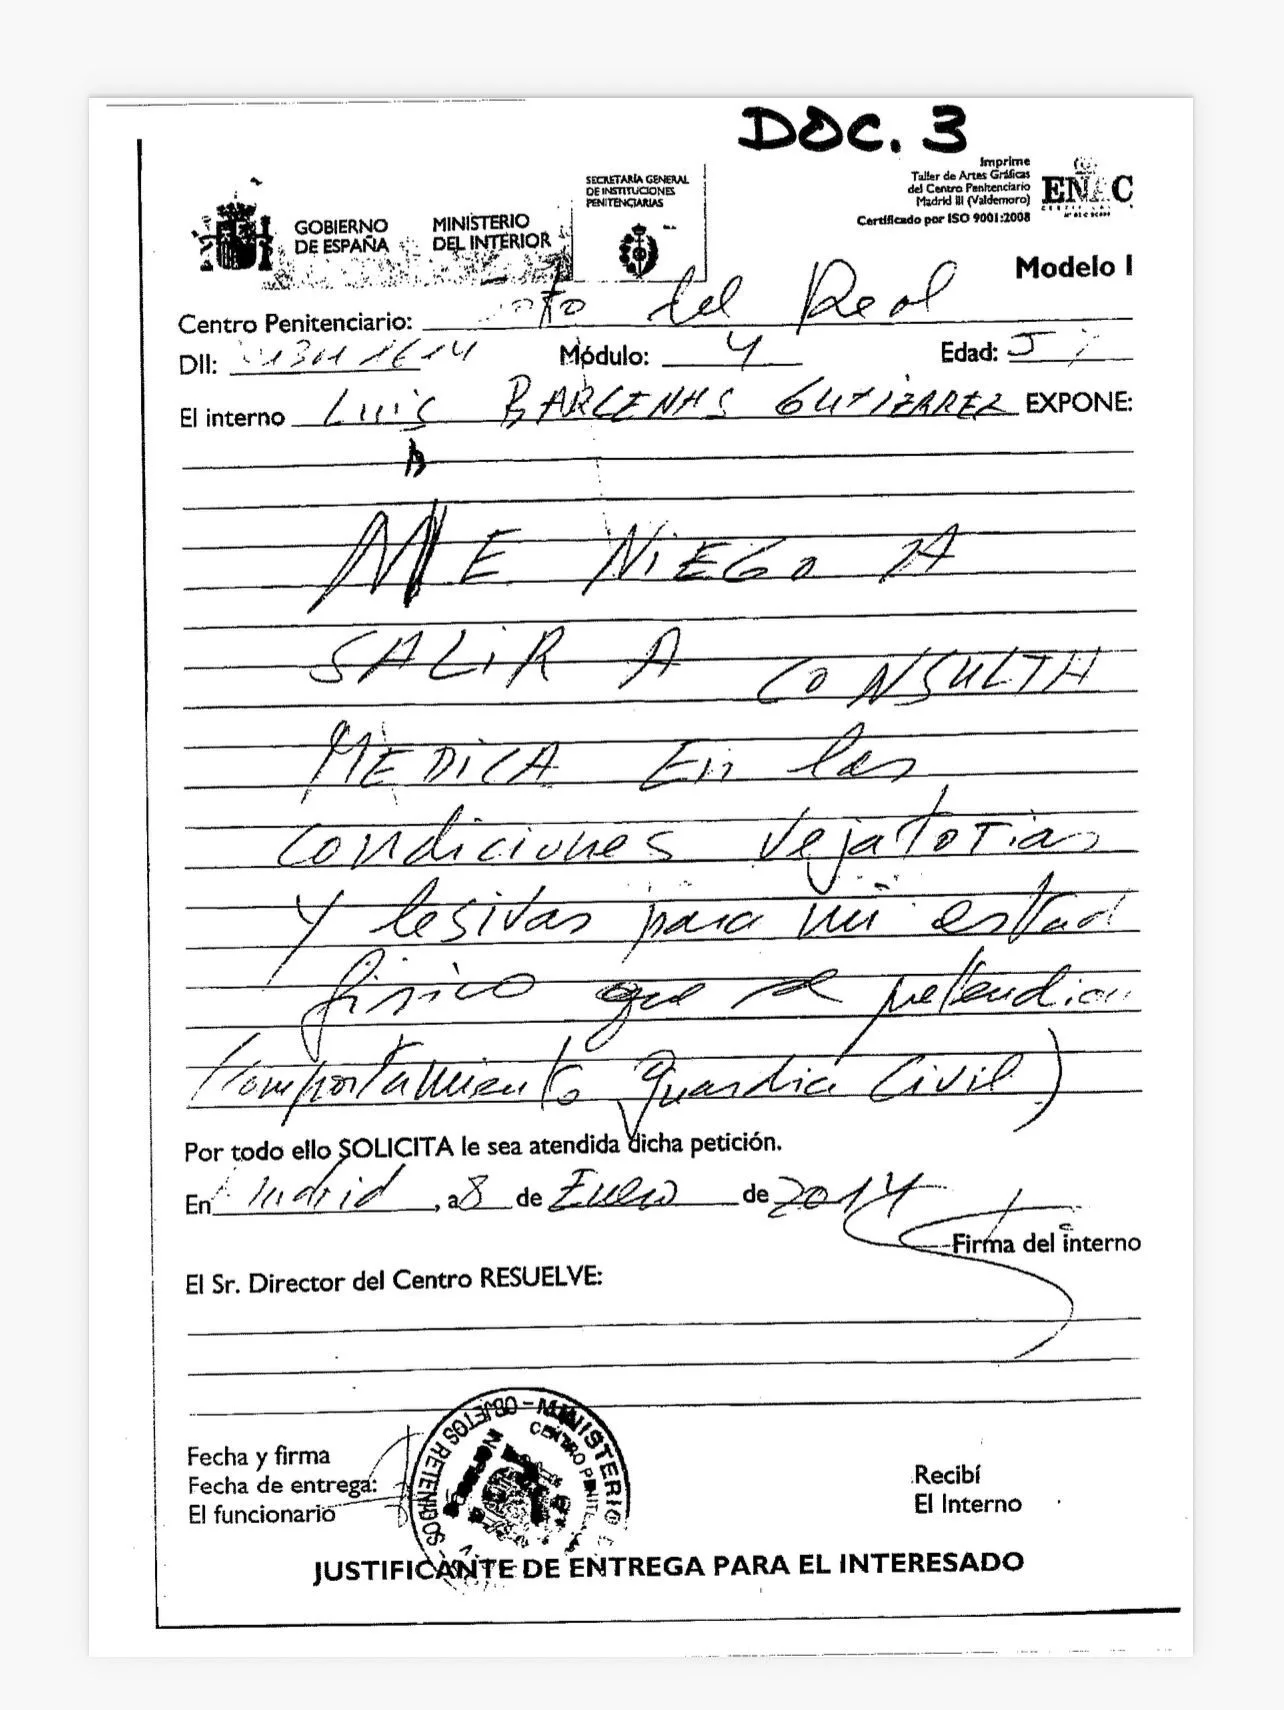 DOC. 3
Imprime
Taller de Artes Gráficas
del Centro Penitenciario
Madrid III (Valdemoro)
Certificado por ISO 9001:2008
ENAC
SECRETARÍA GENERAL
DE INSTITUCIONES
PENITENCIARIAS
GOBIERNO
DE ESPAÑA
MINISTERIO
DEL INTERIOR
Modelo I
Centro Penitenciario: Soto del Real
DII: Módulo: 4 Edad:
El interno Luis BARCENAS GUTIERREZ EXPONE:
ME NIEGO A
SALIR A CONSULTA
MEDICA En las
condiciones vejatorias
Y lesivas para mi estad
físico que se pretendian
(comportamiento guardia Civil)
Por todo ello SOLICITA le sea atendida dicha petición.
En Madrid, a 8 de Enero de 2014
Firma del interno
El Sr. Director del Centro RESUELVE:
Fecha y firma
Fecha de entrega:
El funcionario
OBJETOS RETENIDOS - MINISTERIO
CENTRO
Recibí
El Interno
JUSTIFICANTE DE ENTREGA PARA EL INTERESADO